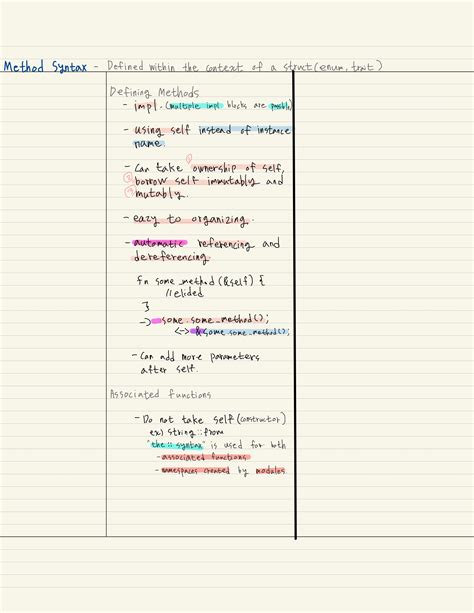 Method Syntax - Defined within the context of a struct (enum, trait)
Defining Methods
- impl. (multiple impl blocks are possible)
- using self instead of instance
name
- Can take ① ownership of self,
② borrow self immutably and
③ mutably.
- eazy to organizing.
- automatic referencing and
dereferencing
fn some_method (&self) {
//elided
}
-> some.some_method();
<-> &some.some_method();
- Can add more parameters
after self.
Associated functions
- Do not take self (constructor)
ex) string::from
"the :: syntax" is used for both
- associated functions
- namespaces created by modules